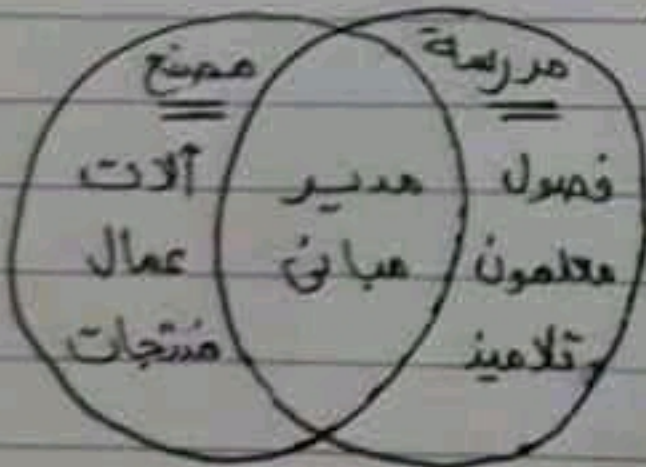 مدرسة
فصول
معلمون
تلاميذ
مدير
مبانى
مصنع
آلات
عمال
مُنتجات